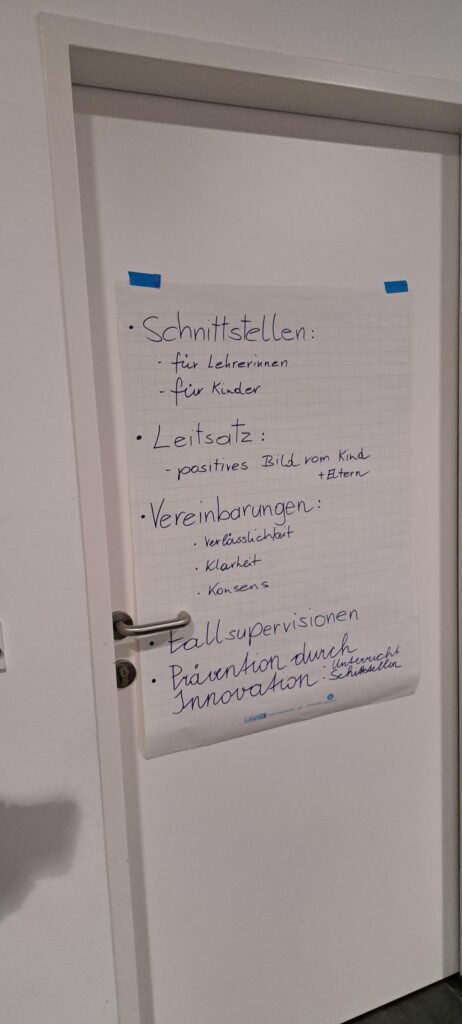 • Schnittstellen:
- für Lehrerinnen
- für Kinder
• Leitsatz:
- positives Bild vom Kind
+ Eltern
• Vereinbarungen:
• Verlässlichkeit
• Klarheit
• Konsens
• Fallsupervisionen
• Prävention durch
Innovation: - Unterricht
- Schittstellen